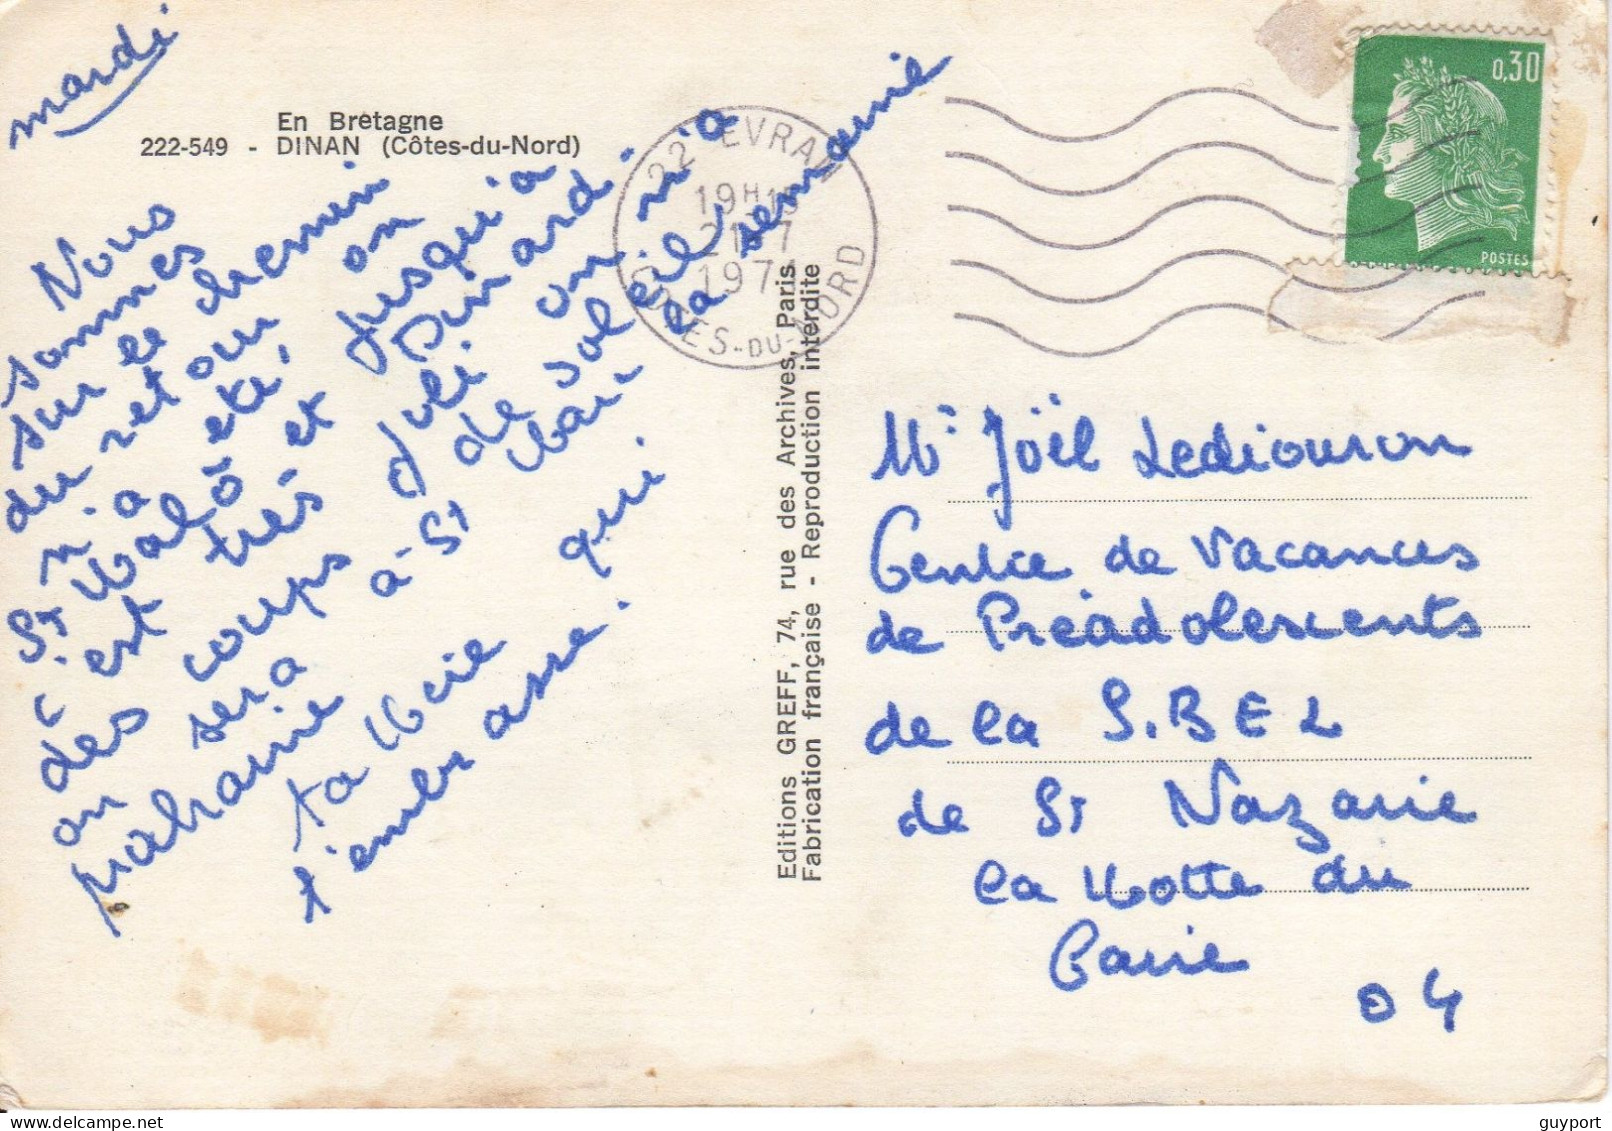 mardi
En Bretagne
222-549 - DINAN (Côtes-du-Nord)
Nous
sommes
sur le chemin
du retour on
n'a été, jusqu'à
St Malô et Dinard.
c'est très joli on n'a
des coups de soleil,
on sera à St la semaine
prohaine
ta qui
t'embrasse.
22 EVRAN
19H15
21-7
CÔTES-DU-NORD
0,30
POSTES
Editions GREFF, 74, rue des Archives, Paris
Fabrication française - Reproduction interdite
Mr Joël Lediouron
Centre de Vacances
de Préadolescents
de la S.BEL
de St Nazaire
la Motte du
Caire
04
guyport